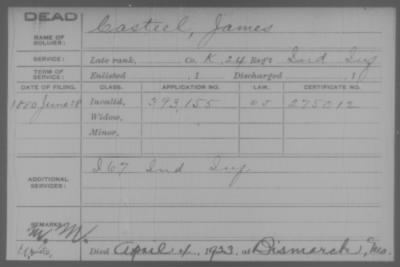 DEAD
NAME OF SOLDIER: Casteel, James
SERVICE: Late rank, Co. K, 24 Reg't Ind Inf
TERM OF SERVICE: Enlisted , 1 Discharged , 1
DATE OF FILING. CLASS. APPLICATION NO. LAW. CERTIFICATE NO.
1880 June 18 Invalid, 393,155 275012
Widow,
Minor,
ADDITIONAL SERVICES: I 67 Ind Inf
REMARKS:
Died April 4, 1923, at Bismarck, Mo.